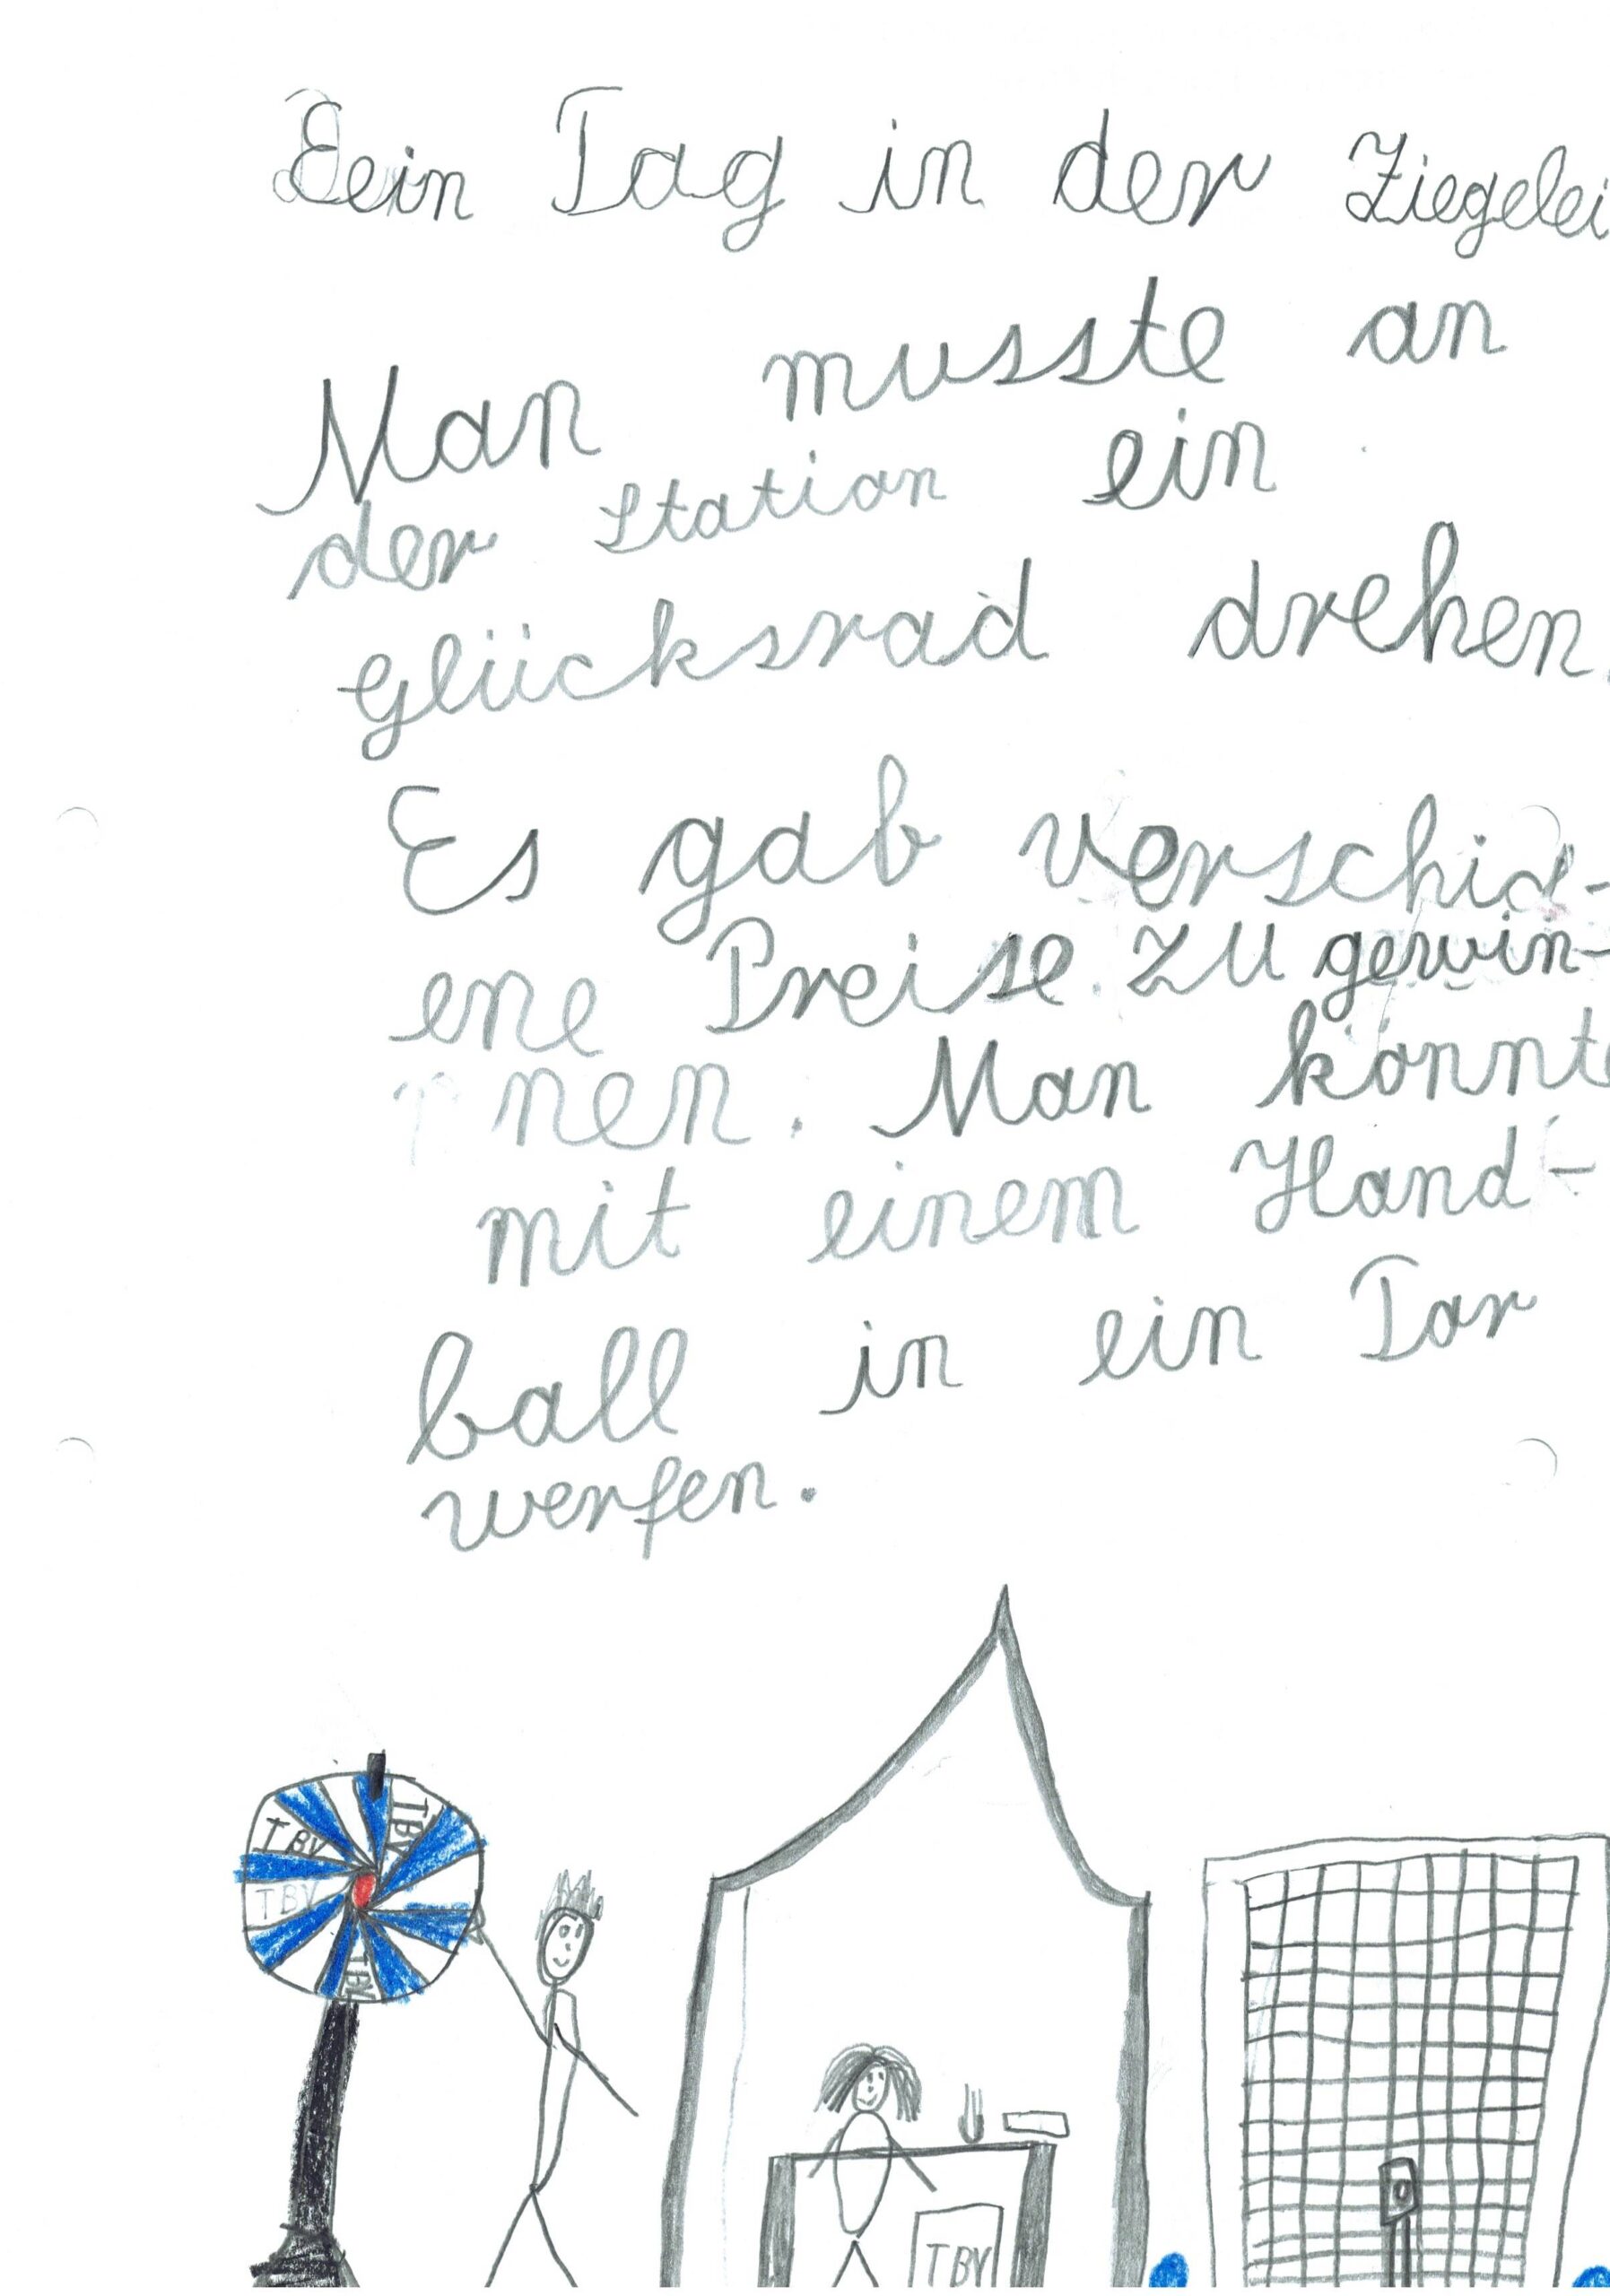 Dein Tag in der Ziegelei
Man musste an
der Station ein
glücksrad drehen.
Es gab verschid-
ene Preise zu gewin-
nen. Man konnte
mit einem Hand-
ball in ein Tor
werfen.
TBV
TBV
TBV
TBV
TBV